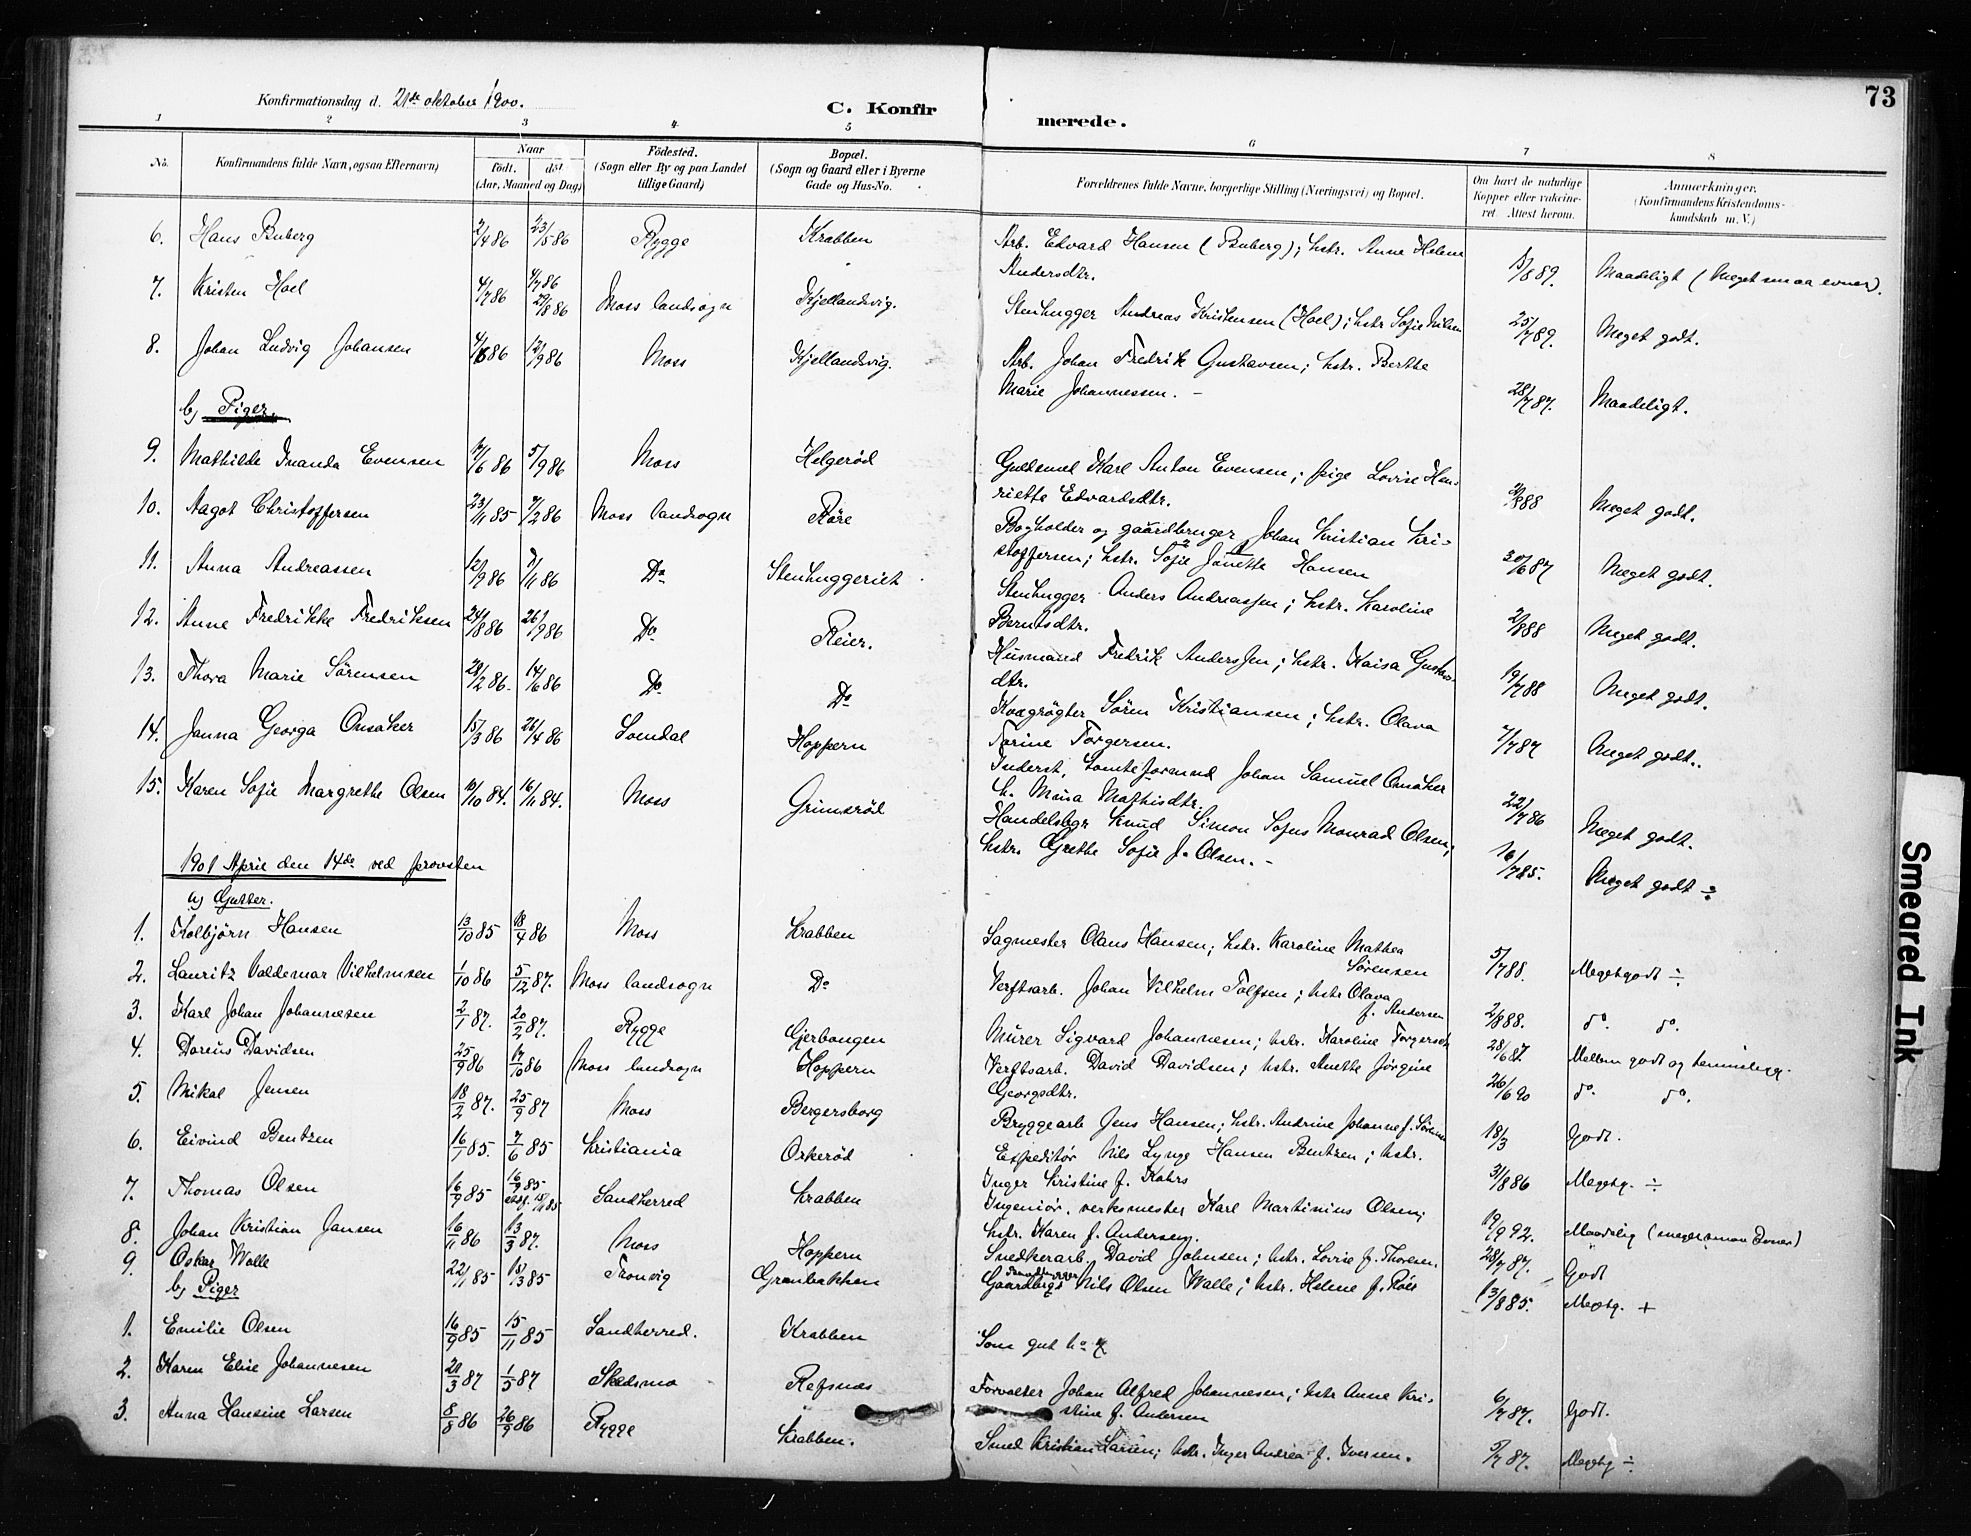 73
Konfirmationsdag d. 21de oktober 1900.
C. Konfir
merede.
1 2 3 4 5 6 7 8
No.
Konfirmandens fulde Navn, ogsaa Efternavn)
Naar
födt. döt
(Aar, Maaned og Dag)
Födested.
(Sogn eller By og paa Landet
tillige Gaard)
Bopæl.
(Sogn og Gaard eller i Byerne
Gade og Hus-No.
Forældrenes fulde Navne, borgerlige Stilling (Næringsvei) og Bopæl.
Om havt de naturlige
Kopper eller vakcine-
ret. Attest herom.
Anmærkninger.
(Konfirmandens Kristendoms-
kundskab m. V.)
6. Hans Buberg 2/4 86 23/5 86 Rygge Krabben Arb. Edvard Hansen (Buberg); hstr. Anne Helene
Andersdtr. /8 89. Maadeligt (Meget smaa evner).
7. Kristen Hoel 4/7 86 29/8 86 Moss landsogn Kjellandsvig. Stenhugger Andreas Kristensen (Hoel); hstr Sofie Nilsen 25/7 89. Meget godt.
8. Johan Ludvig Johansen 86 12/9 86 Moss Kjellandsvig. Arb. Johan Fredrik Gustavsen; hstr. Berthe
Marie Johannessen. – 28/7 87. Maadeligt.
b) Piger.
9. Mathilde Inanda Evensen 17/6 86 5/9 86 Moss Helgerød Guldsmed Karl Anton Evensen; pige Lovise Hen-
riette Edvardsdtr. 888 Meget godt.
10. Aagot Christoffersen 23/11 85 7/2 86 Moss landsogn Røre Bogholder og gaardbruger Johan Kristian Kri-
stoffersen; hstr. Sofie Janette Hansen 30/6 87 Meget godt.
11. Anna Andreassen 12/9 86 7/11 86 Do Stenhuggeriet Stenhugger Anders Andreassen; hstr. Karoline
Berntsdtr. 2/8 88 Meget godt.
12. Anne Fredrikke Fredriksen 24/8 86 26/9 86 Do Reier. Husmand Fredrik Anderssen; hstr. Kaisa Gustavs-
dtr. 19/7 88 Meget godt.
13. Thora Marie Sørensen 28/2 86. 14/6 86 Do Do Søren Kristiansen; hstr. Olava
Torine Torgersen. 7/7 87 Meget godt.
14. Janna Georga Onsaker 15/3 86 26/4 86 Svendal Hoppern Inderst, tomteformand Johan Samuel Onsaker
h. Mina Mathisdtr. 22/7 86 Meget godt.
15. Karen Sofie Margrethe Olsen 10/10 84. 16/11 84. Moss Grimsrød Handelsbgr Knud Simon Sofus Monrad Olsen;
hstr. Grethe Sofie f. Olsen. – 16/7 85. Meget godt ÷
1901 April den 14de ved provsten
a) Gutter.
1. Kolbjørn Hansen 13/10 85 18/4 86 Moss Krabben Sagmester Olaus Hansen; hstr. Karoline Mathea
Sørensen 5/7 88. Megetgodt ÷
2. Lauritz Valdemar Vilhelmsen 1/10 86 5/12 87. Moss landsogn Do Verftsarb. Johan Vilhelm Tolfsen; hstr Olava
f. Andersen 2/8 88. do. do.
3. Karl Johan Johannesen 2/1 87. 20/2 87. Rygge Gjerbongen Murer Sigvard Johannesen; hstr. Karoline Torgersdtr 28/6 87. Mellem godt og temmelig g.
4. Doreus Davidsen 25/9 86 17/10 86 Moss landsogn Hoppern Verftsarb. David Davidsen; hstr. Anette Jørgine
Georgsdtr. 26/6 90 do. do.
5. Mikal Jensen 18/2 87. 25/9 87 Moss Bergersborg Bryggearb Jens Hansen; hstr. Andrine Johanne f. Sørensen 18/3 Godt.
6. Eivind Bentzen 16/1 85. 7/6 85 Kristiania Orkerød Expeditør Nils Lynge Hansen Bentzen; hstr.
Inger Kristine f. Kohrs 31/8 86 Megetg. ÷
7. Thomas Olsen 16/9 85 16/9 85 Sandherred Krabben Ingeniør, verksmester Karl Martinius Olsen;
hstr. Karen f. Andersen. 19/9 92. Maadelig (meget smaa Evner)
8. Johan Kristian Jansen 16/11 86 13/3 87. Moss Hoppern Snedkerarb. David Johnsen; hstr. Lovise f. Thoresen. 28/7 87. Godt
9. Oskar Walle 22/1 85 15/3 85 Tronvig Grønbakken Gaardbrgr Nils Olsen Walle; hstr. Helene f. Röis 13/8 85. Megetg. +
b) Piger
1. Emilie Olsen 16/9 85 15/11 85 Sandherred. Krabben Som gut No 7
2. Karen Elise Johannesen 21/3 87 1/5 87 Skedsmo Refsnes Forvalter Johan Alfred Johannesen; hstr Anne Kri-
stine f. Andersen 6/7 87. Godt.
3. Anna Hansine Larsen 8/8 86 26/9 86 Rygge Krabben. Smed Kristian Larsen; hstr. Inger Andrea f. Iversen. 5/7 87. Megetg ÷
Smeared Ink